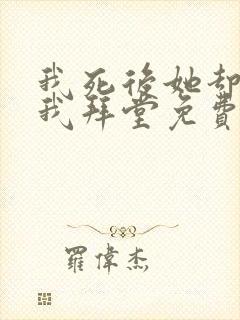 我死後她却
我拜堂免費
羅偉杰